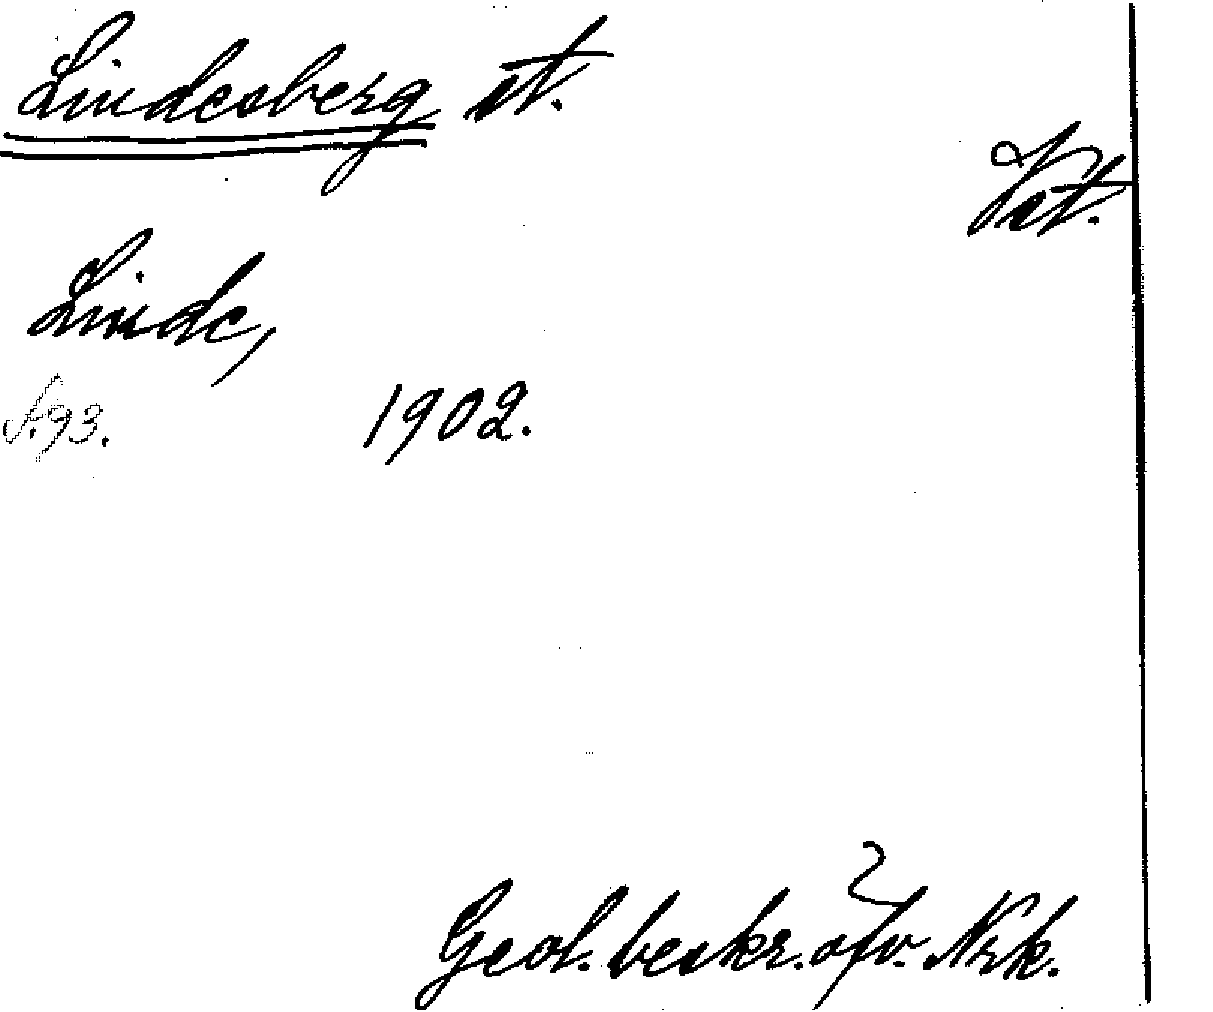 Lindesberg st.
Vst.
Linde,
s. 93. 1902.
Geol. beskr. öfv. Nrk.